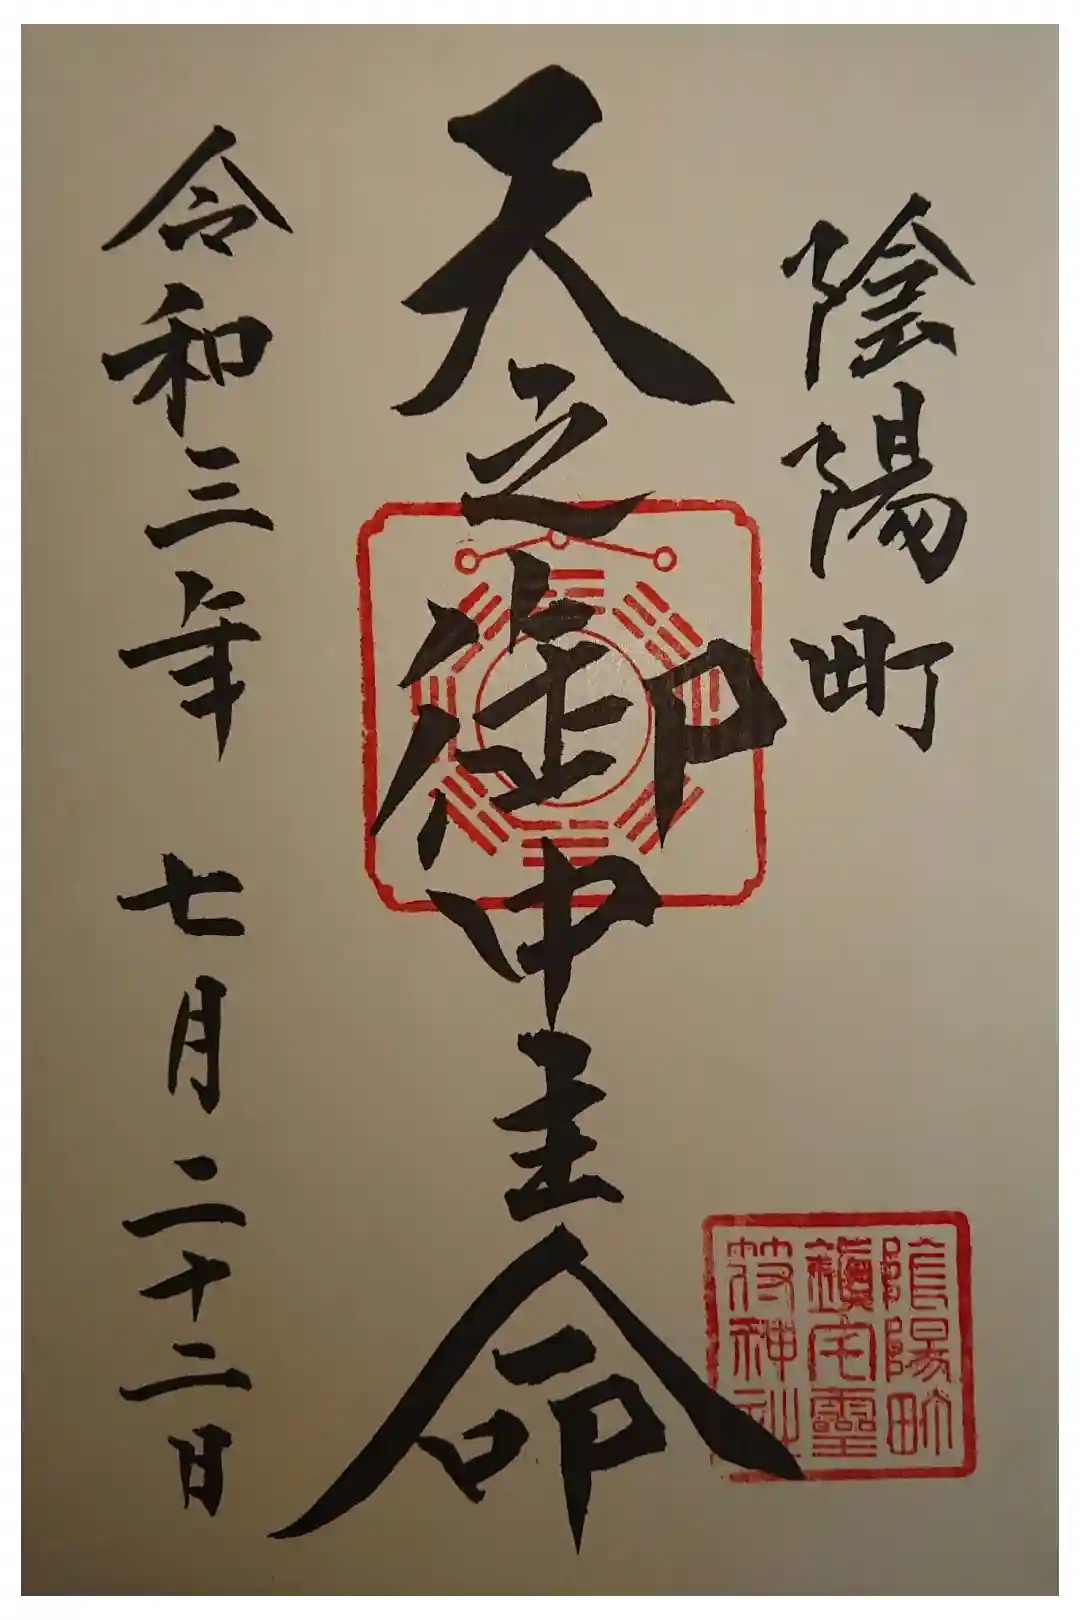 陰陽町
天之御中主命
令和三年 七月二十二日
陰陽町
鎭宅靈
符神社